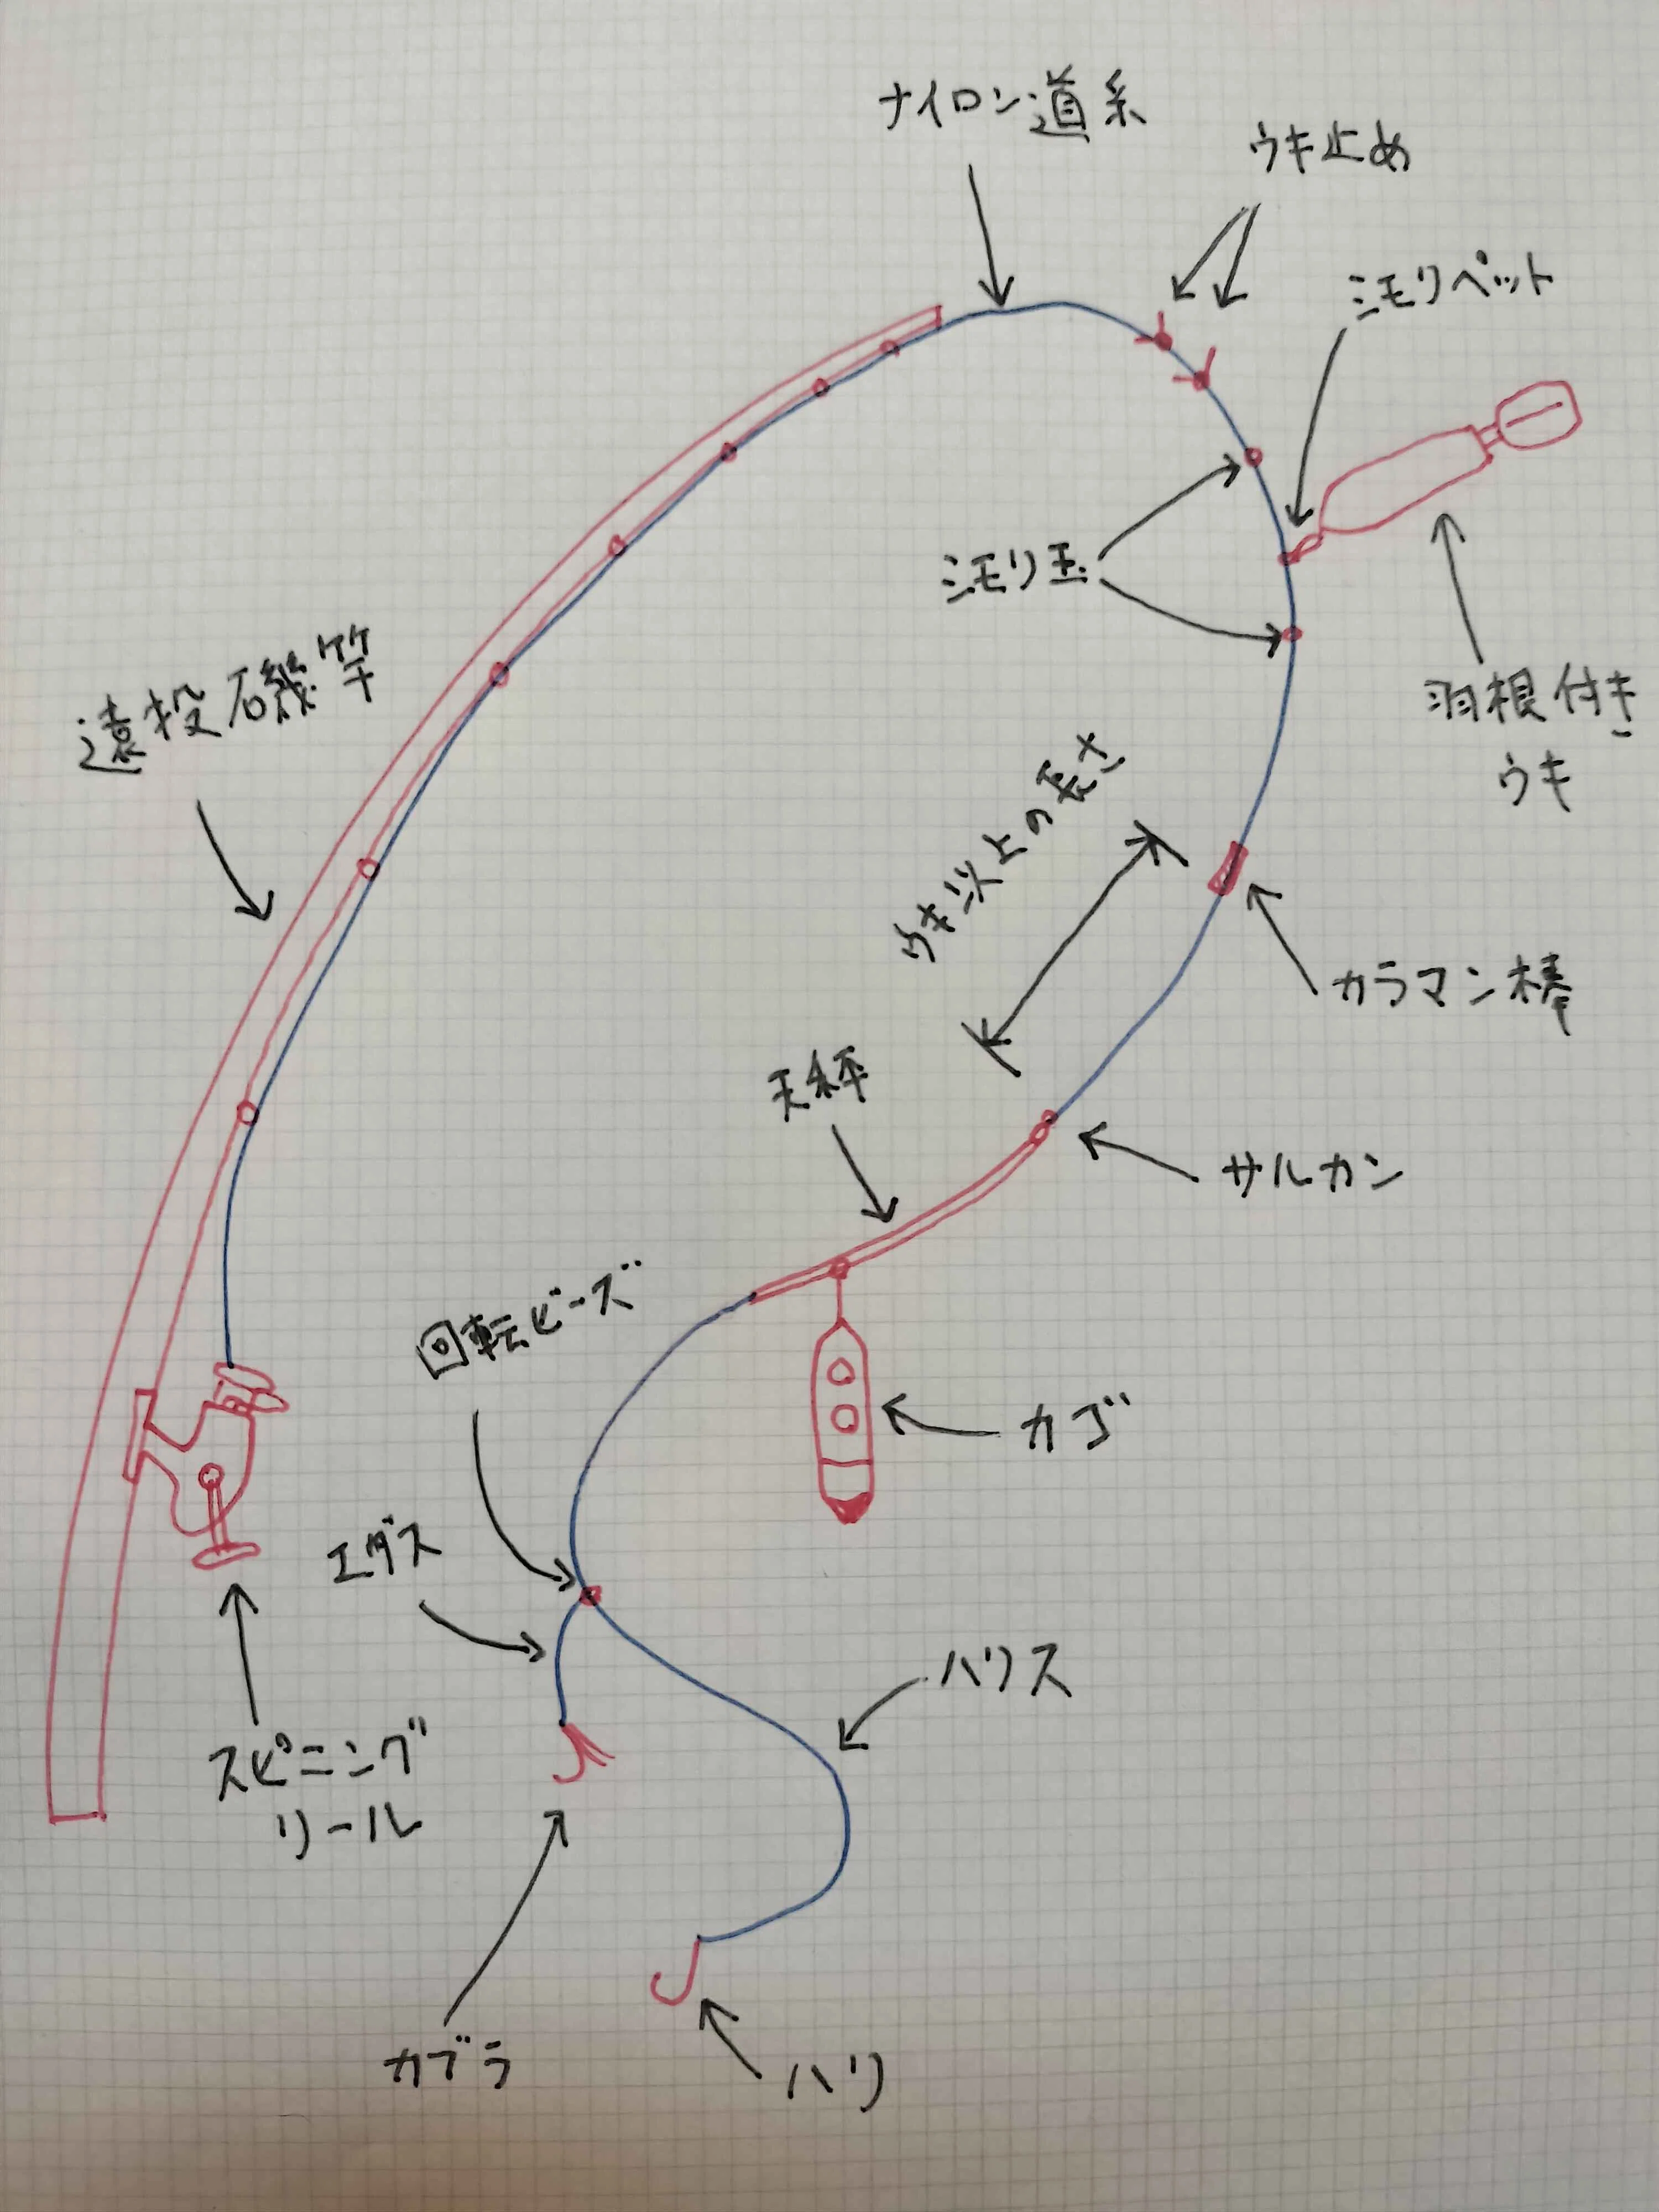 ナイロン道糸
ウキ止め
ミモリペット
ミモリ玉
羽根付き
ウキ
遠投磯竿
ウキ以上の長さ
カラマン棒
天秤
サルカン
回転ビーズ
カゴ
エダス
ハリス
スピニング
リール
カブラ
ハリ